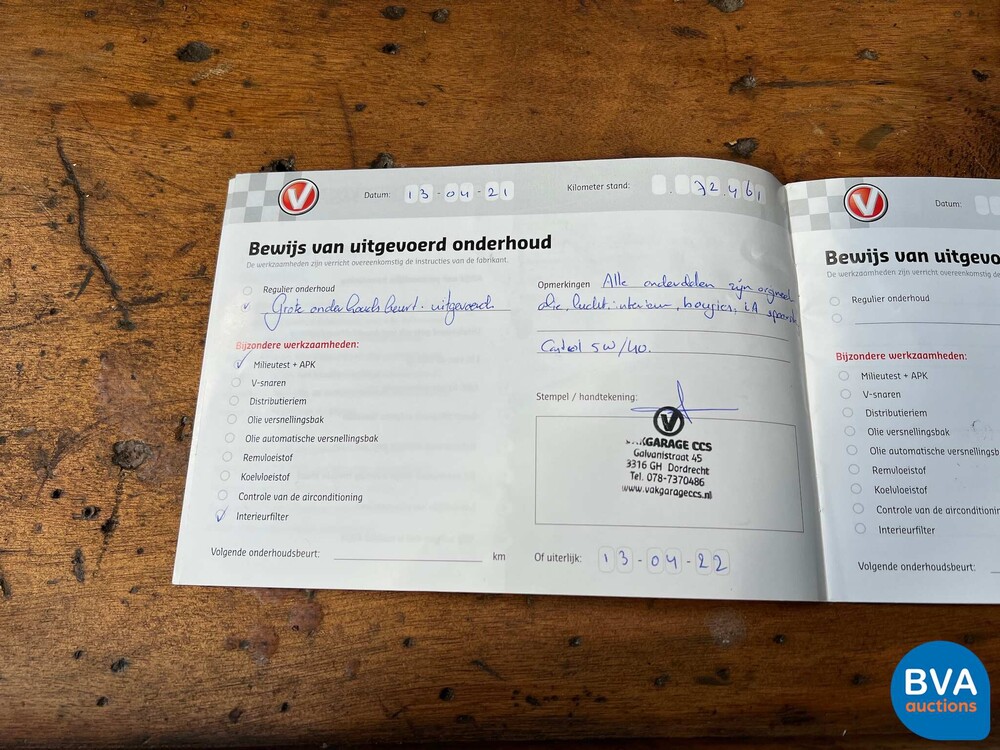 Datum: 13-04-21 Kilometer stand: 72.461
Bewijs van uitgevoerd onderhoud
De werkzaamheden zijn verricht overeenkomstig de instructies van de fabrikant.
Regulier onderhoud
Grote onderhoudsbeurt uitgevoerd
Bijzondere werkzaamheden:
Milieutest + APK
V-snaren
Distributieriem
Olie versnellingsbak
Olie automatische versnellingsbak
Remvloeistof
Koelvloeistof
Controle van de airconditioning
Interieurfilter
Volgende onderhoudsbeurt: km
Opmerkingen Alle onderdelen zijn
olie, lucht, interieur, bougies,
Castrol 5W/40.
Stempel / handtekening:
V
GARAGE CCS
Galvanistraat 45
3316 GH Dordrecht
Tel. 078-7370486
www.vakgarageccs.nl
Of uiterlijk: 13-04-22
V
Datum:
Bewijs van uitgevo
De werkzaamheden zijn verricht overeenkomstig de
Regulier onderhoud
Bijzondere werkzaamheden:
Milieutest + APK
V-snaren
Distributieriem
Olie versnellingsbak
Olie automatische versnellingsb
Remvloeistof
Koelvloeistof
Controle van de airconditionin
Interieurfilter
Volgende onderhoudsbeurt:
BVA
auctions